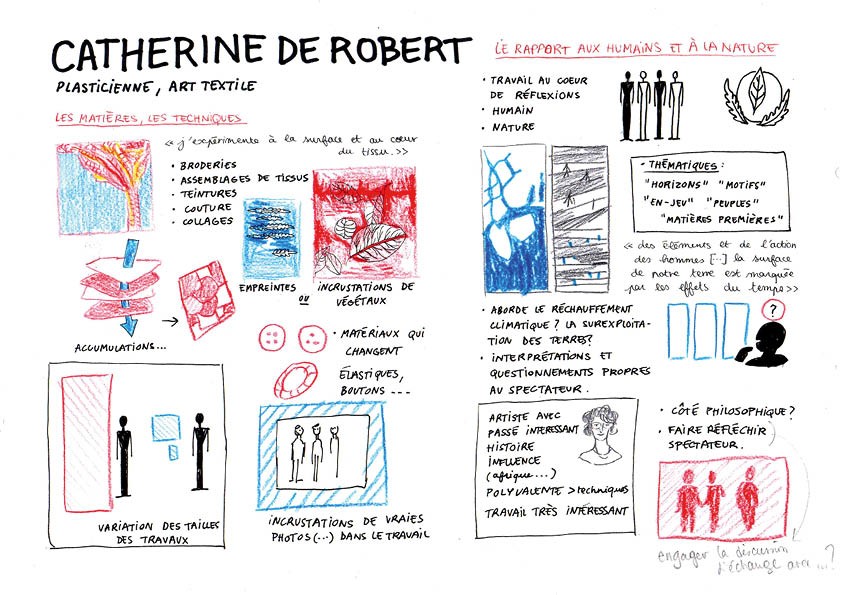 CATHERINE DE ROBERT
PLASTICIENNE, ART TEXTILE
LES MATIÈRES, LES TECHNIQUES
<< j'expérimente à la surface et au cœur
du tissu. >>
• BRODERIES
• ASSEMBLAGES DE TISSUS
• TEINTURES
• COUTURE
• COLLAGES
EMPREINTES
OU
INCRUSTATIONS DE
VÉGÉTAUX
ACCUMULATIONS...
• MATÉRIAUX QUI
CHANGENT
ÉLASTIQUES,
BOUTONS ---
VARIATION DES TAILLES
DES TRAVAUX
INCRUSTATIONS DE VRAIES
PHOTOS (...) DANS LE TRAVAIL
LE RAPPORT AUX HUMAINS ET À LA NATURE
• TRAVAIL AU COEUR
DE RÉFLEXIONS
• HUMAIN
• NATURE
• THÉMATIQUES :
"HORIZONS" "MOTIFS"
"EN-JEU" "PEUPLES"
"MATIÈRES PREMIÈRES"
<< des éléments et de l'action
des hommes [...] la surface
de notre terre est marquée
par les effets du temps >>
• ABORDE LE RÉCHAUFFEMENT
CLIMATIQUE ? LA SUREXPLOITA-
TION DES TERRES?
• INTERPRÉTATIONS ET
QUESTIONNEMENTS PROPRES
AU SPECTATEUR.
?
ARTISTE AVEC
PASSÉ INTERESSANT
HISTOIRE
INFLUENCE
(afrique...)
POLYVALENTE > techniques
TRAVAIL TRÈS INTÉRESSANT
• CÔTÉ PHILOSOPHIQUE ?
• FAIRE RÉFLÉCHIR
SPECTATEUR.
engager la discussion
l'échange avec ...?